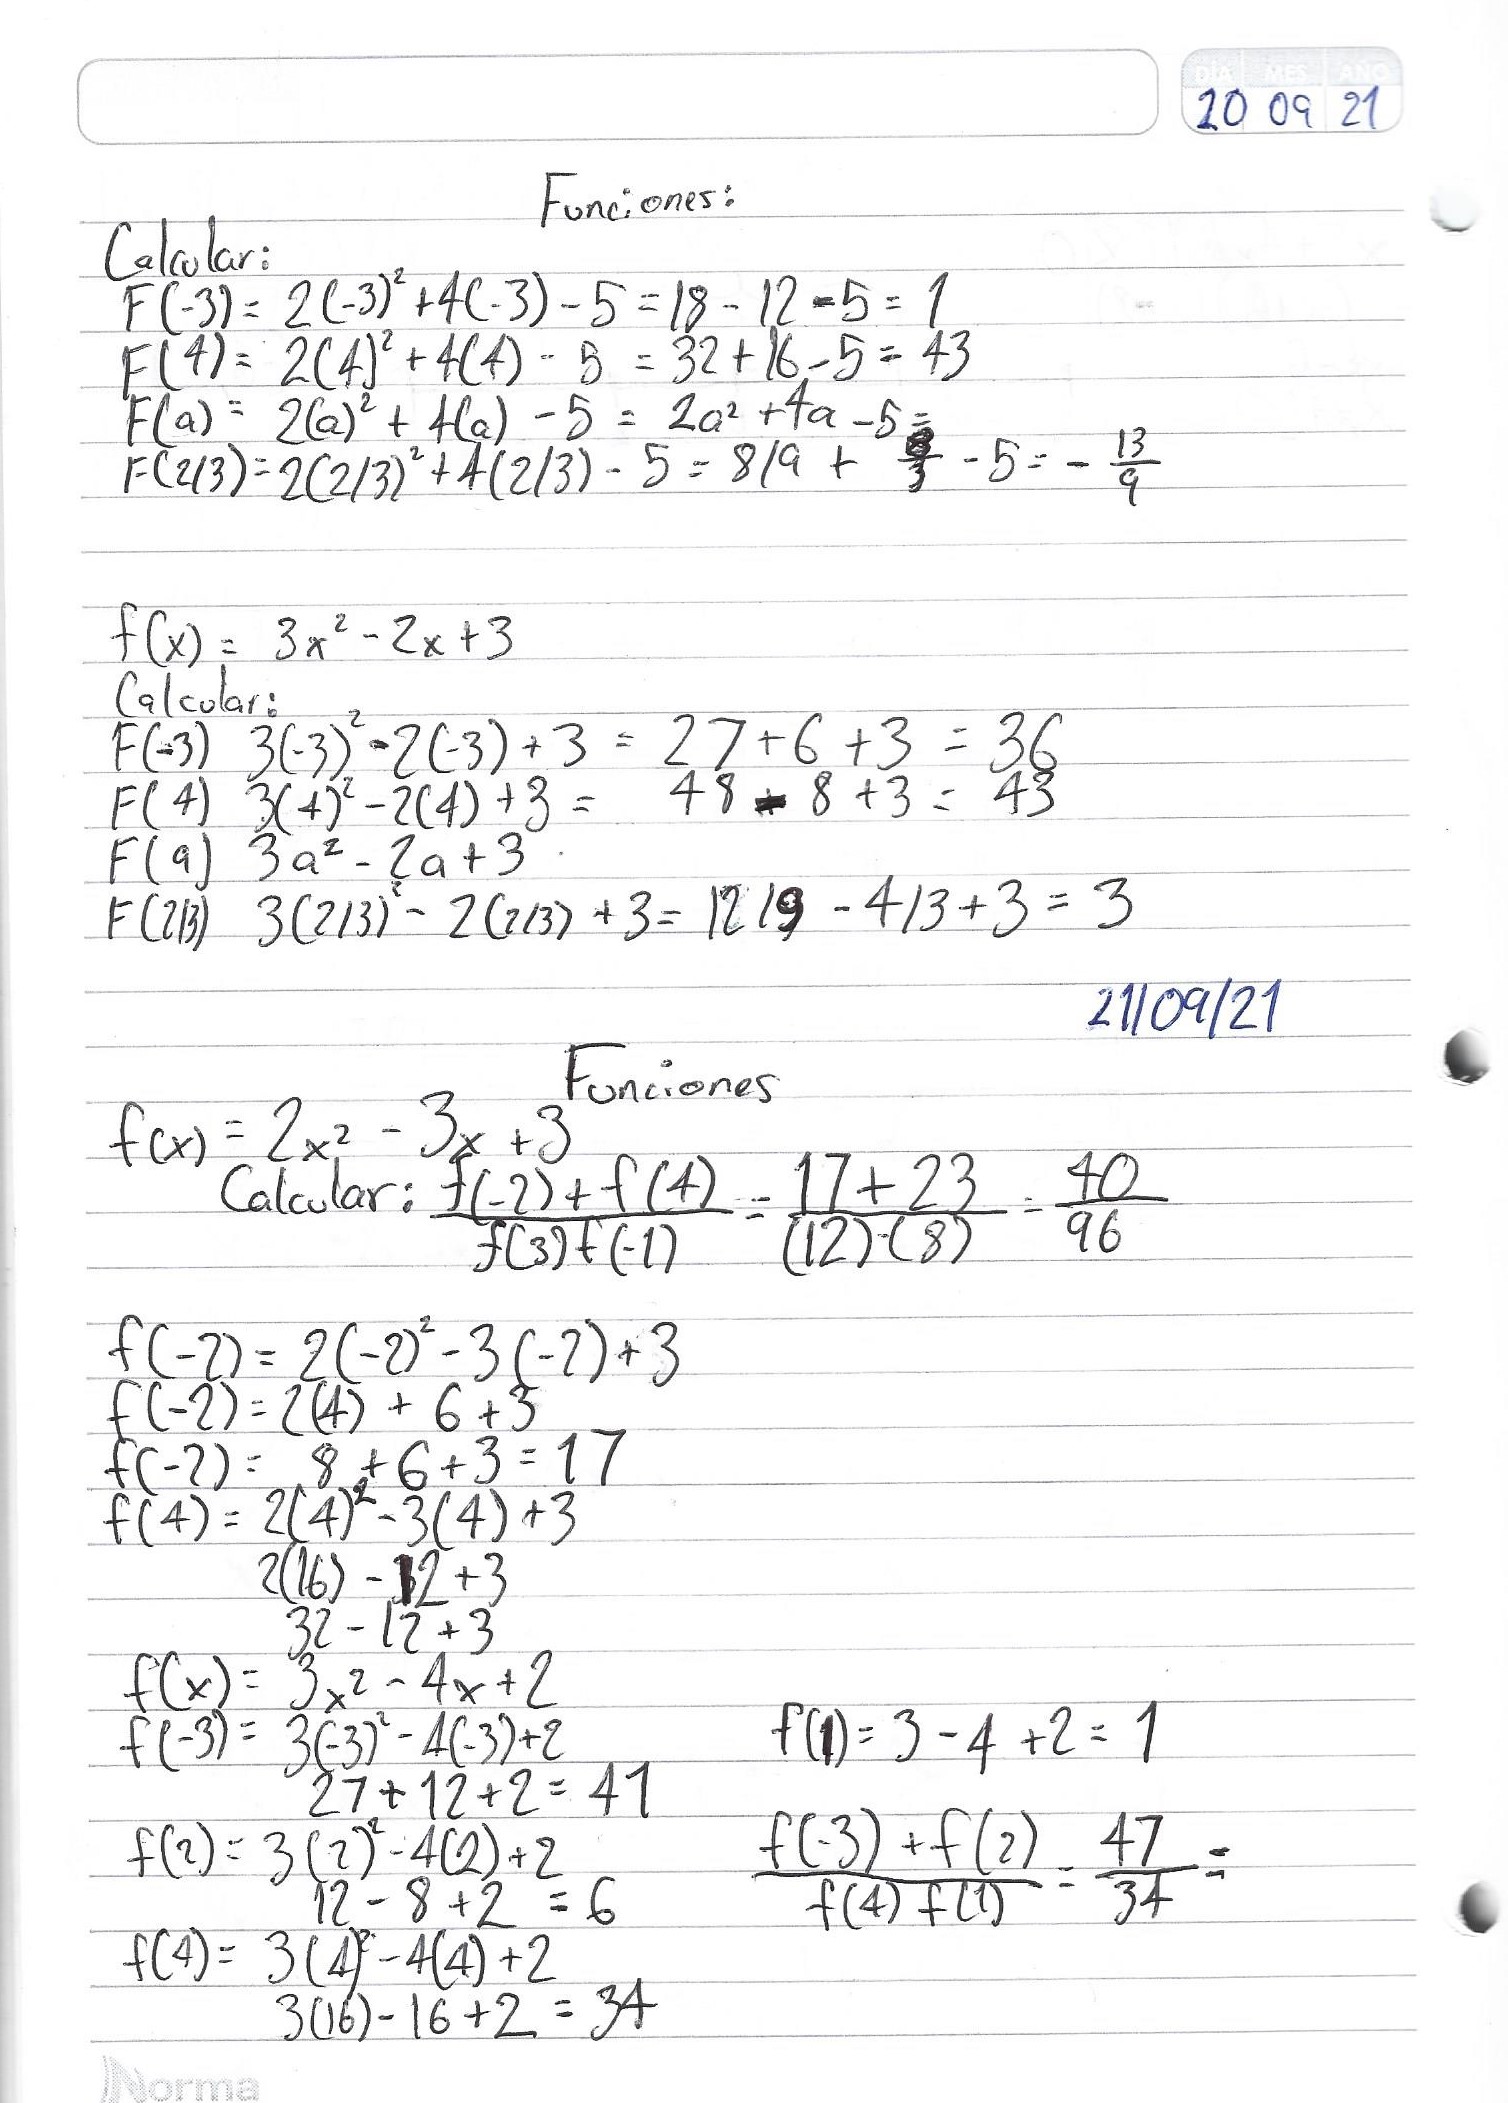 DÍA MES AÑO
20 09 21
Funciones:
Calcular:
F(-3) = 2(-3)² + 4(-3) - 5 = 18 - 12 - 5 = 1
F(4) = 2(4)² + 4(4) - 5 = 32 + 16 - 5 = 43
F(a) = 2(a)² + 4(a) - 5 = 2a² + 4a - 5 =
F(2/3) = 2(2/3)² + 4(2/3) - 5 = 8/9 + 8/3 - 5 = - 13/9
f(x) = 3x² - 2x + 3
Calcular:
F(-3) 3(-3)² - 2(-3) + 3 = 27 + 6 + 3 = 36
F(4) 3(4)² - 2(4) + 3 = 48 - 8 + 3 = 43
F(a) 3a² - 2a + 3
F(2/3) 3(2/3)² - 2(2/3) + 3 = 12/9 - 4/3 + 3 = 3
21/09/21
Funciones
f(x) = 2x² - 3x + 3
Calcular: f(-2) + f(4) / f(3) f(-1) = 17 + 23 / (12)·(8) = 40/96
f(-2) = 2(-2)² - 3(-2) + 3
f(-2) = 2(4) + 6 + 3
f(-2) = 8 + 6 + 3 = 17
f(4) = 2(4)² - 3(4) + 3
2(16) - 12 + 3
32 - 12 + 3
f(x) = 3x² - 4x + 2
f(-3) = 3(-3)² - 4(-3) + 2
27 + 12 + 2 = 41
f(2) = 3(2)² - 4(2) + 2
12 - 8 + 2 = 6
f(4) = 3(4)² - 4(4) + 2
3(16) - 16 + 2 = 34
f(1) = 3 - 4 + 2 = 1
f(-3) + f(2) / f(4) f(1) = 47/34 =
Norma